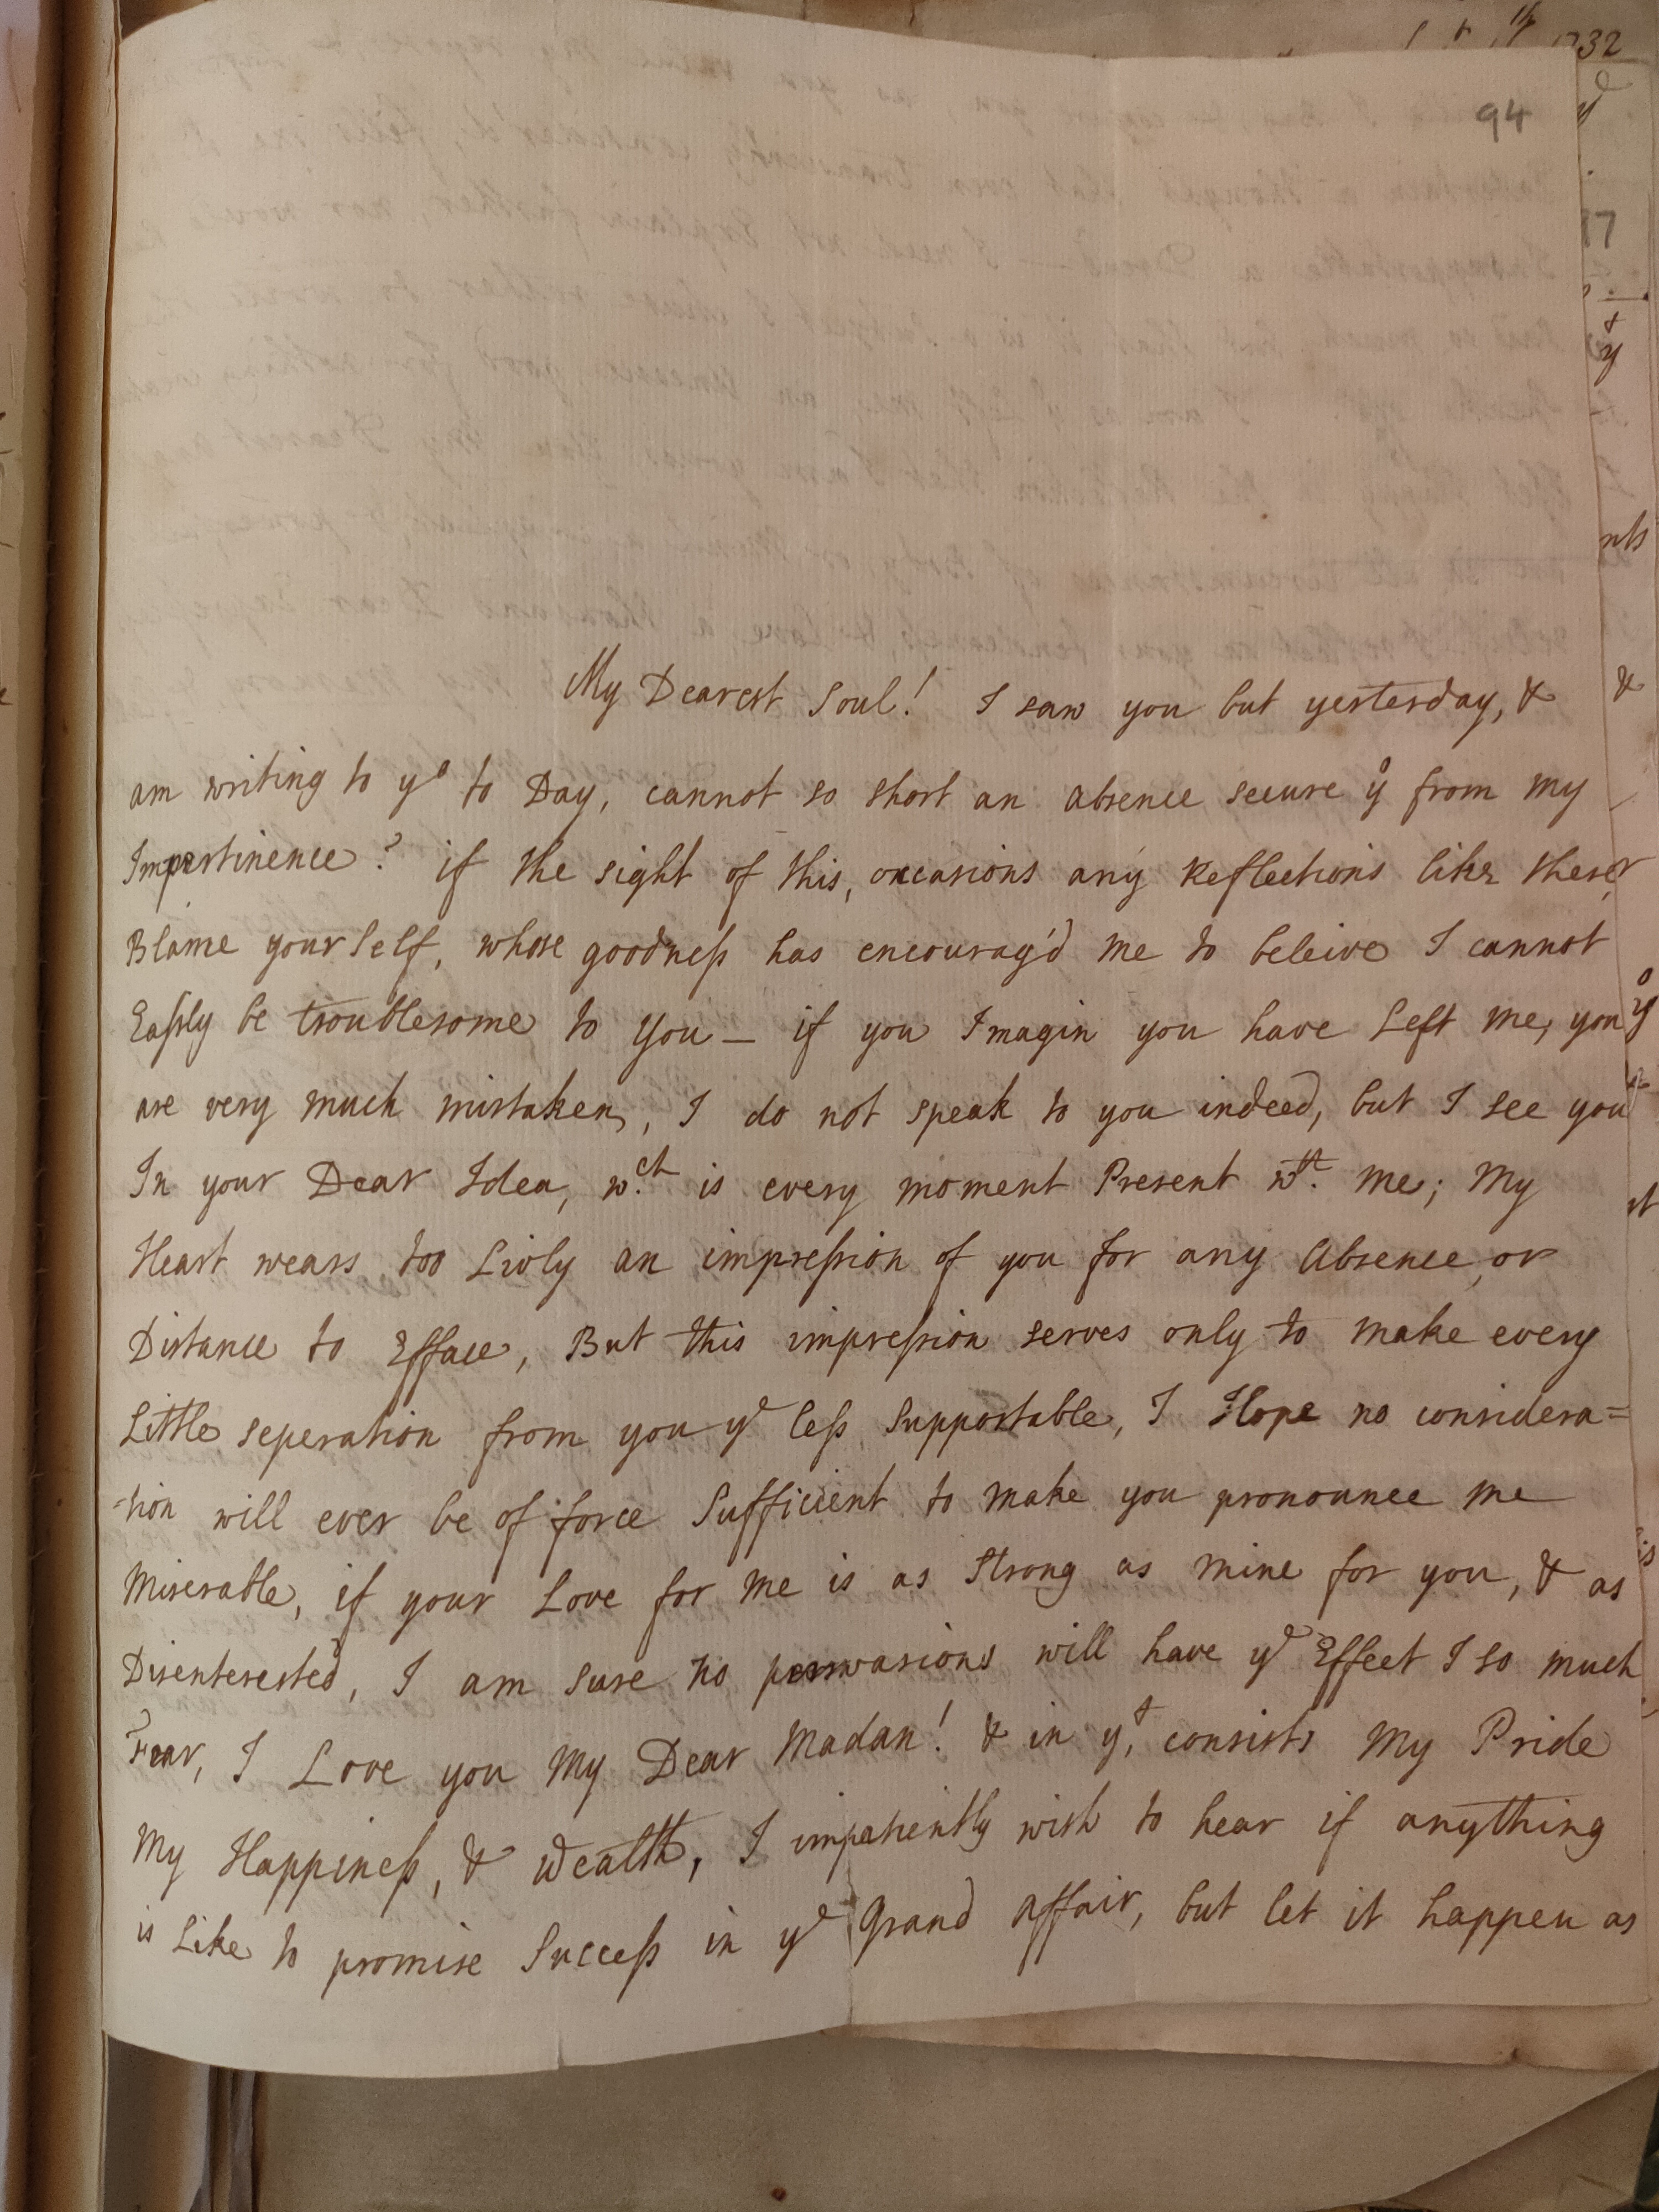 32
94
My Dearest Soul! I saw you but yesterday, &
am writing to yo to Day, cannot so short an absence secure yo from my
Impertinence? if the sight of this, occasions any Reflections like these,
Blame your Self, whose goodness has encourag'd me to beleive I cannot
Easily be troublesome to You — if you Imagin you have Left me, you
are very much mistaken, I do not speak to you indeed, but I see you
In your Dear Idea, wch. is every moment Present wth. me; My
Heart wears too Livly an impression of you for any Absence, or
Distance to Efface, But this impression serves only to make every
Little seperation from you ye less Supportable, I Hope no considera=
=tion will ever be of force Sufficient to make you pronounce me
Miserable, if your Love for me is as Strong as mine for you, & as
Disenterested, I am sure no perswasions will have ye Effect I so much
Fear, I Love you My Dear Madan! & in yt, consists My Pride
My Happiness, & Wealth, I impatiently wish to hear if anything
is Like to promise Success in ye Grand Affair, but let it happen as